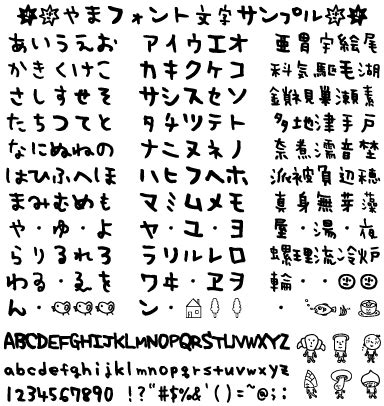 やまフォント文字サンプル
あいうえお アイウエオ 亜胃宇絵尾
かきくけこ カキクケコ 科気駆毛湖
さしすせそ サシスセソ 鎖見巣瀬素
たちつてと タチツテト 多地津手戸
なにぬねの ナニヌネノ 奈煮濡音埜
はひふへほ ハヒフヘホ 派被負辺穂
まみむめも マミムメモ 真身無芽藻
や・ゆ・よ ヤ・ユ・ヨ 屋・湯・夜
らりるれろ ラリルレロ 螺里流冷炉
わゐ・ゑを ワヰ・ヱヲ 輪・・
ん・ ン・ ・
ABCDEFGHIJKLMNOPQRSTUVWXYZ
abcdefghijklmnopqrstuvwxyz
1234567890 !?"#$%&'()=~@;: